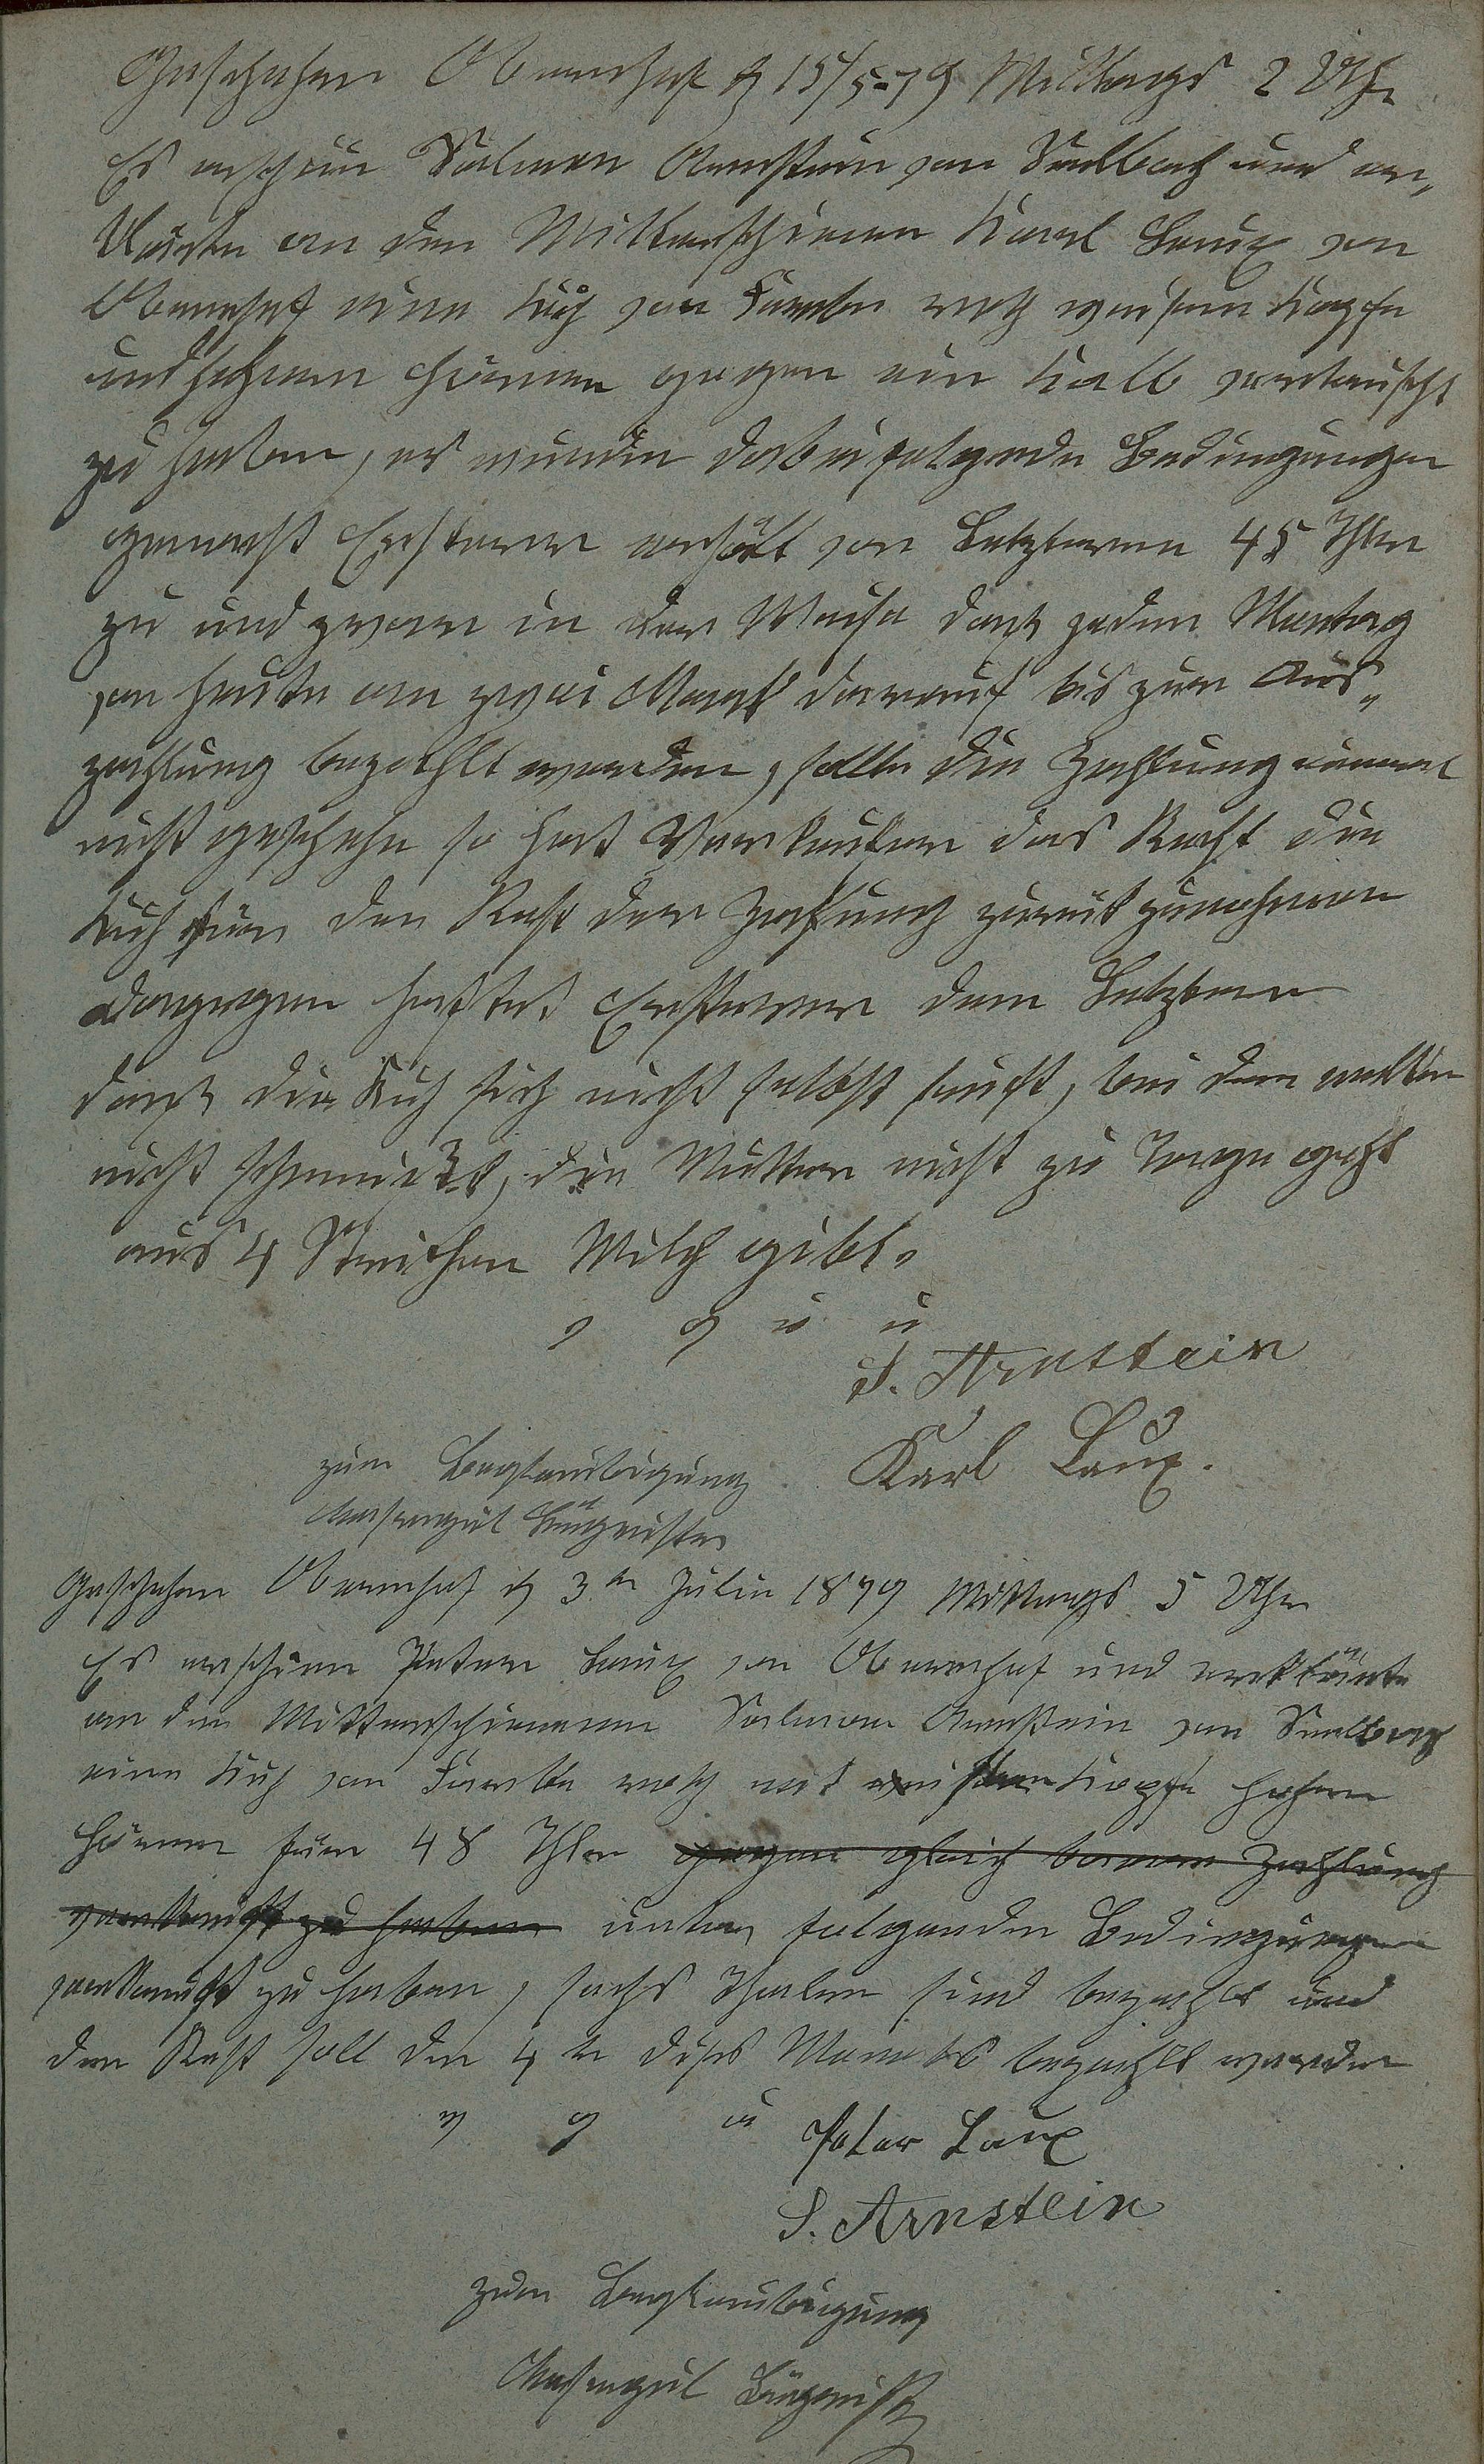 Geschehen Obernhof d 15/5-79 Mittags 2 Uhr
Es erschien Salmon Arnstein von Seelbach und er„
klärte an den Miterschienen Karl Laux von
Obernhof eine Kuh von Farbe roth weisem Kopfe
und hohem Hörner gegen ein Kalb vertauscht
zu haben, es wurden dabei folgende Bedingungen
gemacht Ersterer erhält von Letzteren 45 Thlr
zu und zwar in der Weise dast jeden Montag
von heute an zwei Mark darauf bis zur Aus„
zahlung bezahlt werden, sollte die Zahlung einmal
nicht geschehe so hat Verkäufer das Recht die
Kuh für den Rest der Zahlung zurück zunehmen
dagegen haftet Ersterer dem Letztern
dast die Kuh sich nicht selbst sauft, bei dem melken
nicht schmeickt, die Mutter nicht zu Tage geht
aus 4 Strichen Milch gibt.
v g u u
S. Arnstein
zur Beglaubigung Karl Laux.
Bürgmeister
Geschehen Obernhof d 3ten Julie 1879 Mittags 5 Uhr
Es erschien Peter Laux von Obernhof und erklärte
an den Mitterschienenen Salmon Arnstein von Seelbach
eine Kuh von Farbe roth mit weistem Kopfe hohen
Hörner für 48 Thlr gegen gleich baare Zahlung
verkauft zu haben unter folgenden Bedingungen
verkauft zu haben, sechs Thaler sind bezahlt und
der Rest soll den 4te dises Monats bezahlt werden
v g u Peter Laux
S. Arnstein
zur Beglaubigung
Bürgmeister